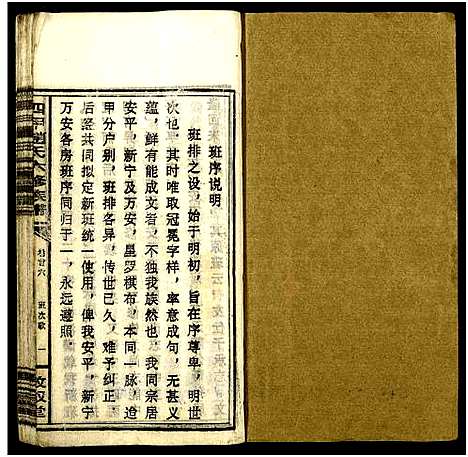 班序说明
班排之设，始于明初，旨在序尊卑，明世
次也。其时唯取冠冕字样，率意成句，无甚义
蕴，鲜有能成文者，不独我族然也。我同宗居
安平，新宁及万安，星罗棋布，本同一脉，迨
甲分户别，班排各异，传世已久，难予纠正，
后经共同拟定新班统一使用，俾我安平，新宁
万安各房班序同归于一，永远遵照。
四甲 氏六修族谱
卷廿六
班次歌
一
敦叙堂